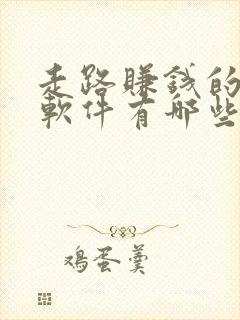 走路賺錢的
軟件有哪些
鸡蛋羹